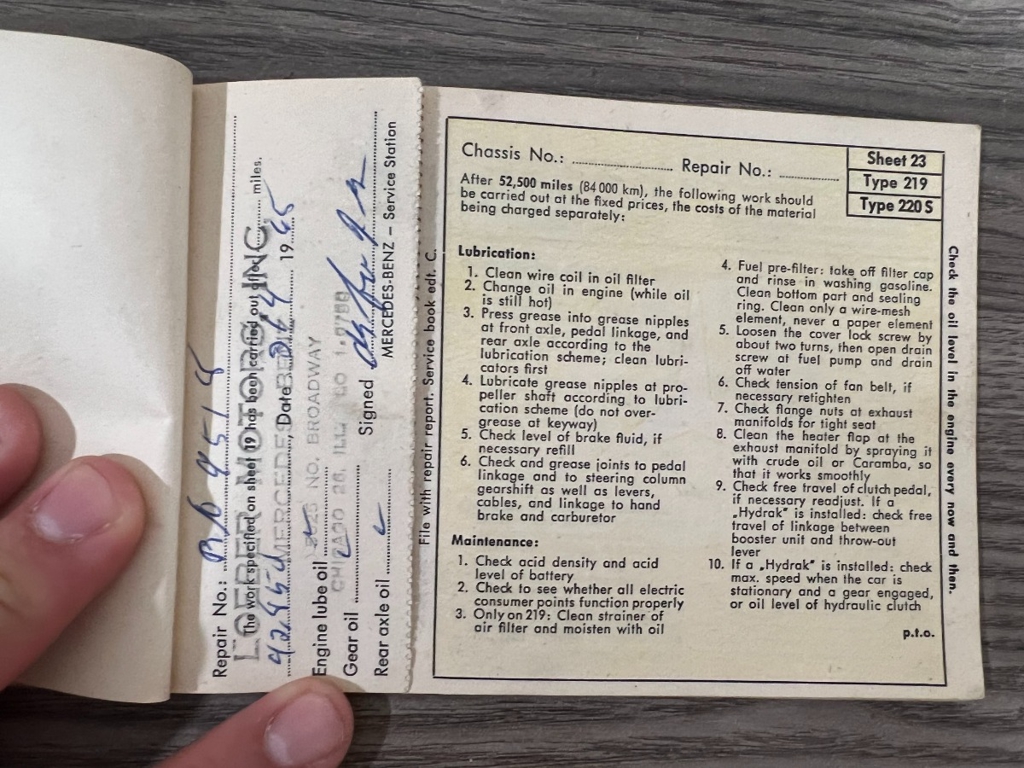 Repair No.: B6 4518
The work specified on sheet 19 has been carried out at miles.
LOEBER MOTORS, INC.
Date 19 65
MERCEDES BENZ
Engine lube oil
NO. BROADWAY
Gear oil
CHICAGO 26, ILL.
Signed
Rear axle oil
MERCEDES-BENZ – Service Station
File with repair report. Service book edt. C.
Chassis No.: Repair No.:
Sheet 23
Type 219
Type 220 S
After 52,500 miles (84 000 km), the following work should
be carried out at the fixed prices, the costs of the material
being charged separately:
Lubrication:
1. Clean wire coil in oil filter
2. Change oil in engine (while oil
is still hot)
3. Press grease into grease nipples
at front axle, pedal linkage, and
rear axle according to the
lubrication scheme; clean lubri-
cators first
4. Lubricate grease nipples at pro-
peller shaft according to lubri-
cation scheme (do not over-
grease at keyway)
5. Check level of brake fluid, if
necessary refill
6. Check and grease joints to pedal
linkage and to steering column
gearshift as well as levers,
cables, and linkage to hand
brake and carburetor
Maintenance:
1. Check acid density and acid
level of battery
2. Check to see whether all electric
consumer points function properly
3. Only on 219: Clean strainer of
air filter and moisten with oil
4. Fuel pre-filter: take off filter cap
and rinse in washing gasoline.
Clean bottom part and sealing
ring. Clean only a wire-mesh
element, never a paper element
5. Loosen the cover lock screw by
about two turns, then open drain
screw at fuel pump and drain
off water
6. Check tension of fan belt, if
necessary retighten
7. Check flange nuts at exhaust
manifolds for tight seat
8. Clean the heater flap at the
exhaust manifold by spraying it
with crude oil or Caramba, so
that it works smoothly
9. Check free travel of clutch pedal,
if necessary readjust. If a
„Hydrak" is installed: check free
travel of linkage between
booster unit and throw-out
lever
10. If a „Hydrak" is installed: check
max. speed when the car is
stationary and a gear engaged,
or oil level of hydraulic clutch
p.t.o.
Check the oil level in the engine every now and then.